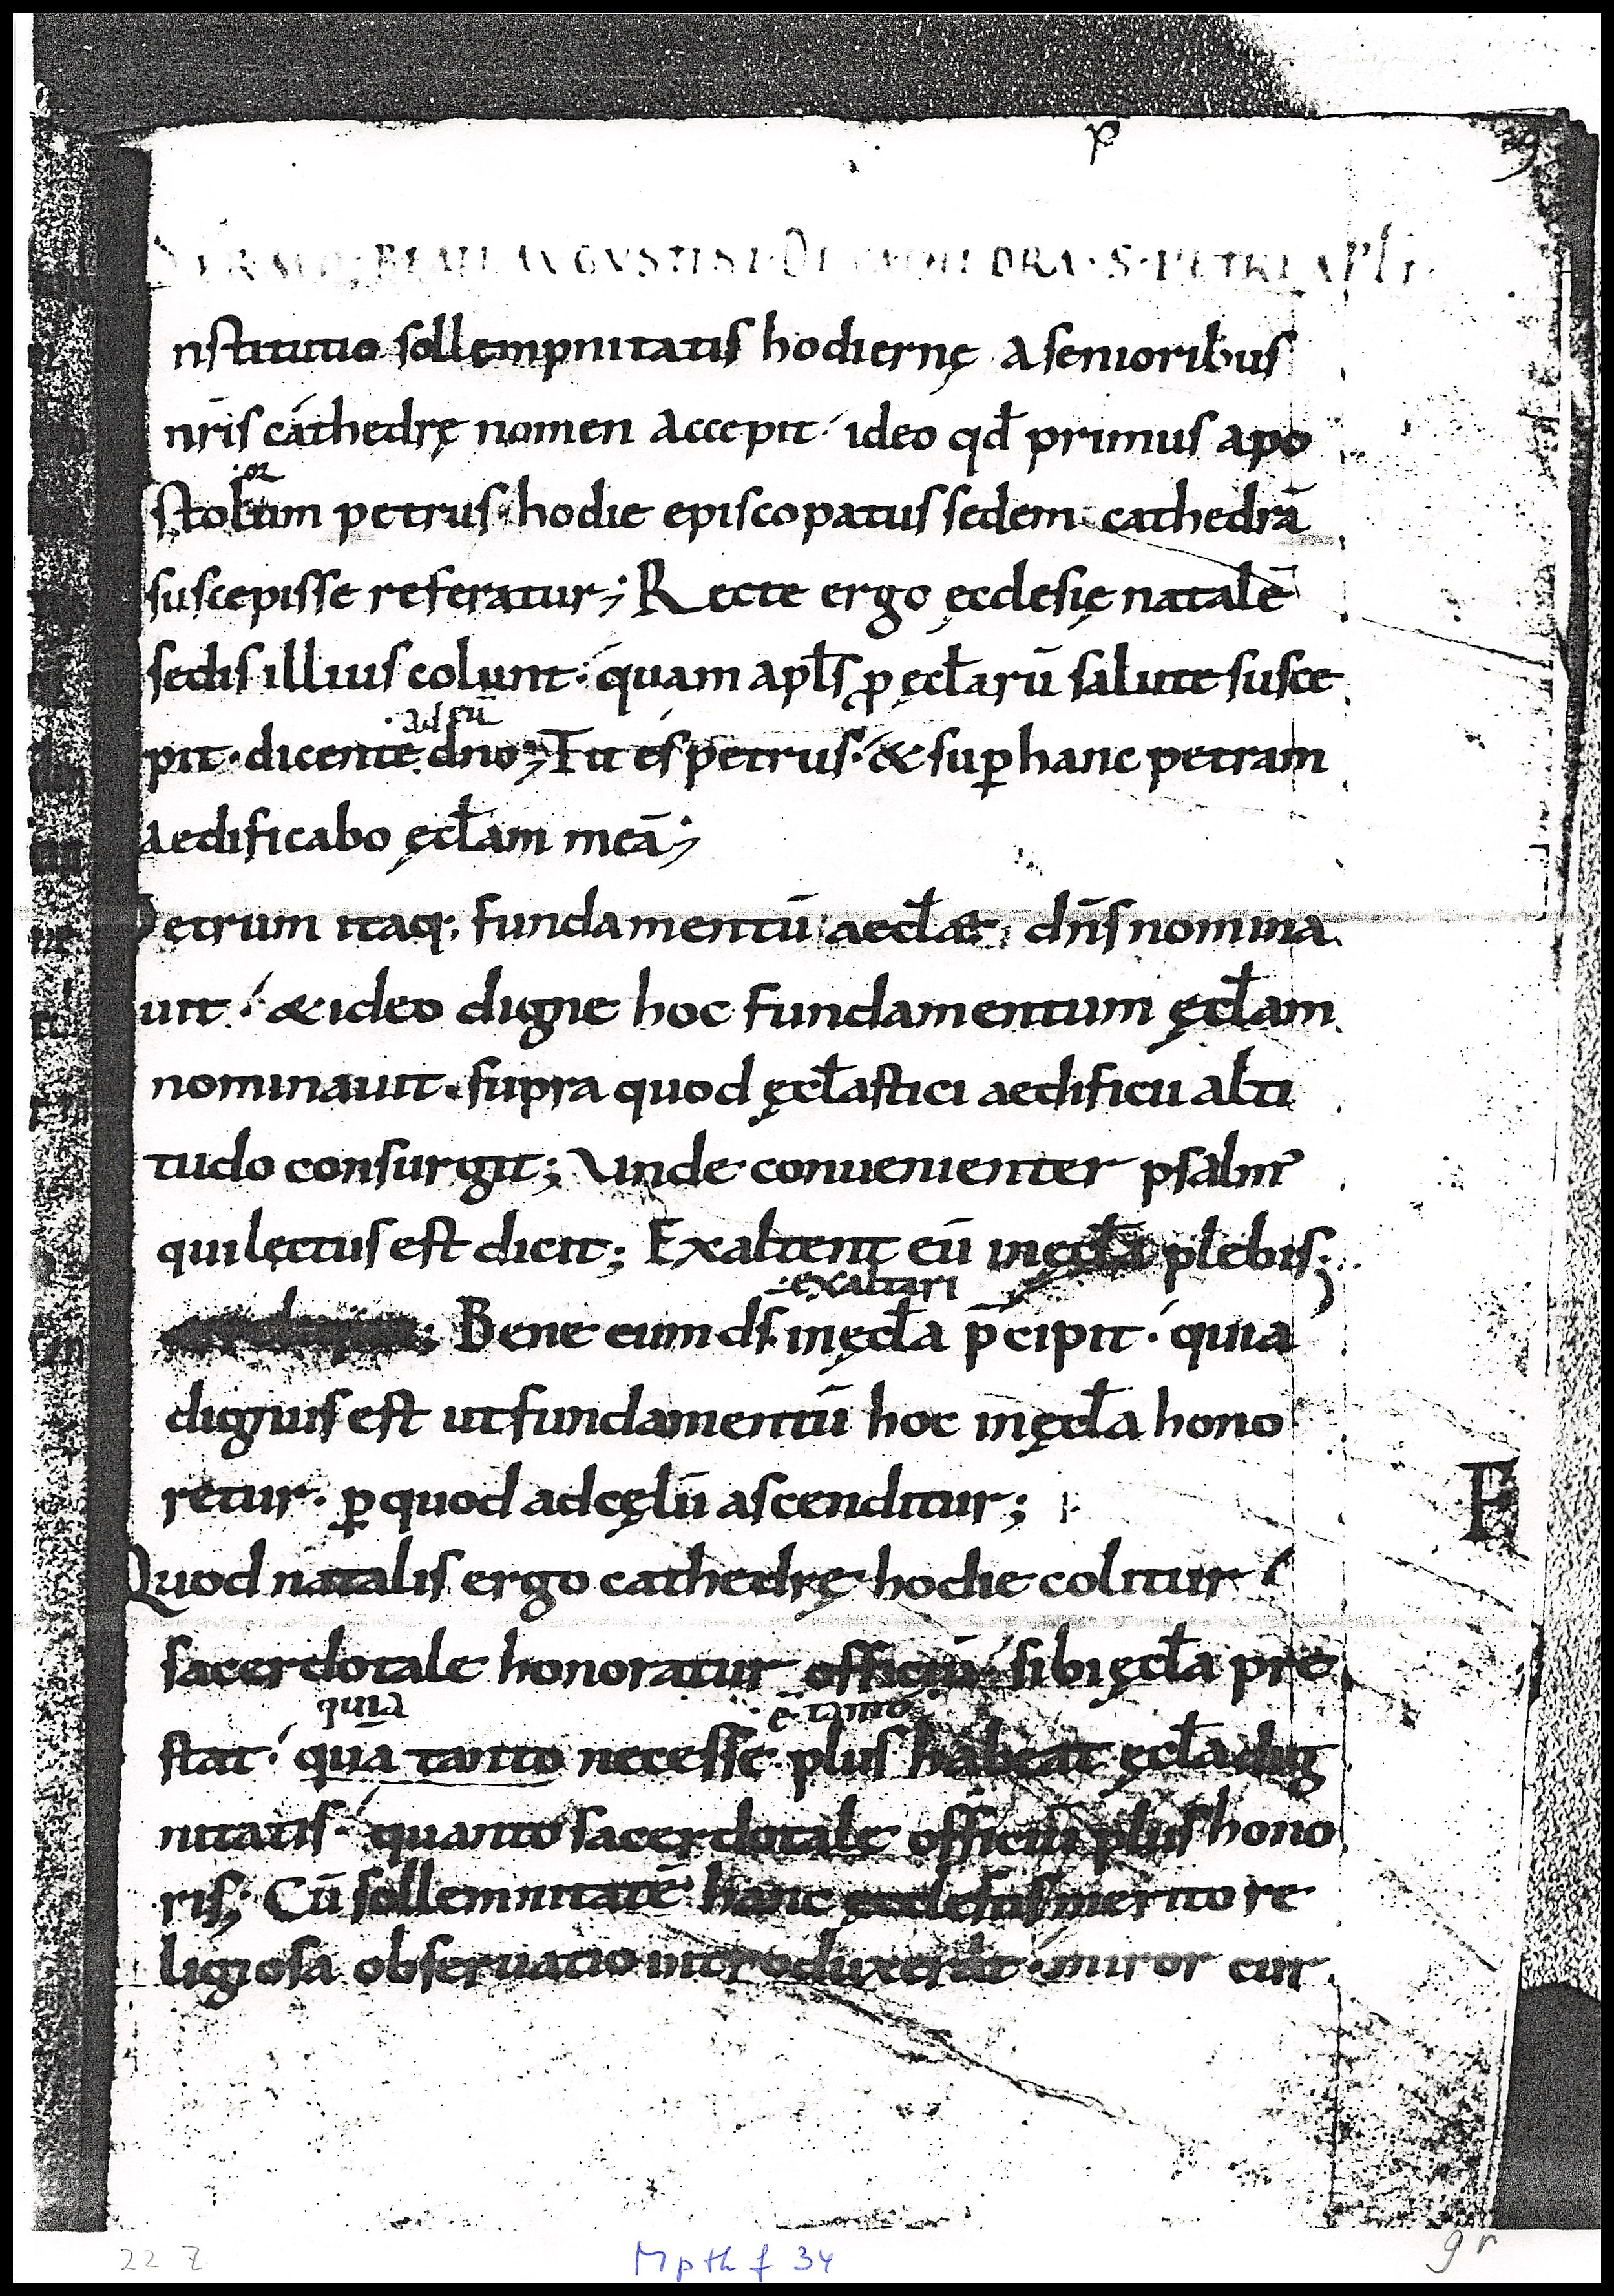 p
9
SERMO BEATI AVGVSTINI DE CATHEDRA S PETRI APLI
nstitutio sollempnitatis hodiernę a senioribus
nr̄is cáthedrę nomen accepit· ideo qđ primus apo
·oꝝ
stolum petrus· hodie episcopatus sedem cathedrā
suscepisse referatur; Recte ergo ęcclesię natalē
sedis illius colunt· quam apl̄s ꝓ ęcl̄arū salute susce
·ad eū
pit· dicente dn̄o; Tu és petrus· & suꝑ hanc petram
aedificabo ęcl̄am meā;
Petrum itaq; fundamentū aecl̄ae dn̄s nomina
uit· & ideo digne hoc fundamentum ęcl̄am
nominauit· supra quod ęcl̄astici aedificii alti
tudo consurgit; Unde conuenienter psalm̄
qui lectus est dicit; Exaltent eū in ęcl̄a plebis;
·exaltari
Bene eum ds̄ in ęcl̄a p̄cipit· quia
dignus est ut fundamentū hoc in ęcl̄a hono
retur· ꝑ quod ad cęlū ascenditur;
F
Quod natalis ergo cathedrę hodie colitur
sacerdotale honoratur officiū· sibi ęcl̄a pre
quia ē tanto
stat· qua tanto necesse plus habeat ęcl̄a dig
nitatis· quanto sacerdotale officiū plus hono
ris; Cū sollemnitatē hanc ecclesiis merito re
ligiosa obseruatio introduxerit· miror cur
22 Z
M p th f 34
9 r